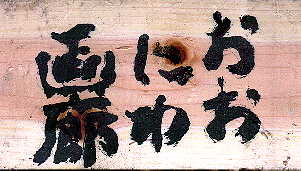 おお
にわ
画廊